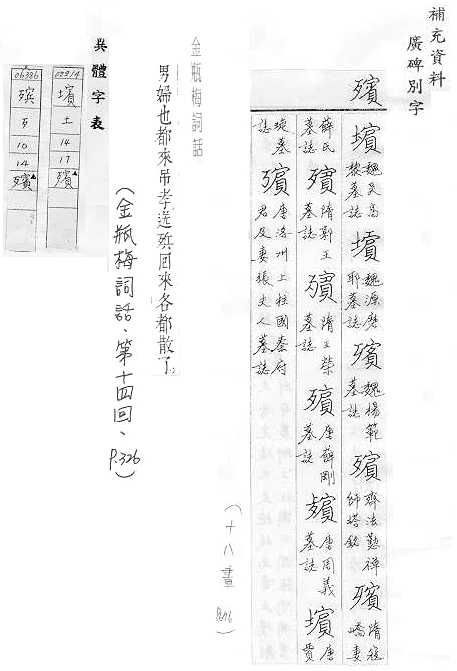 補充資料
廣碑別字
殯
墳 魏吳高黎墓誌 墳 魏源磨耶墓誌 殯 魏楊範墓誌 殯 齊法懃禪師塔銘 殯 隋程嶠妻
薛氏墓誌 殯 隋郭王墓誌 殯 隋王榮墓誌 殯 唐薛剛墓誌 殯 唐周義墓誌 墳 唐賈
琁墓誌 殯 唐洛州上柱國秦府君及妻張夫人墓誌
(十八畫 P.276)
金瓶梅詞話
男婦也都來吊孝送殯回來各都散了
(金瓶梅詞話、第十四回、P.326)
異體字表
02914 墳 土 14 17 殯
06386 殡 歹 10 14 殯